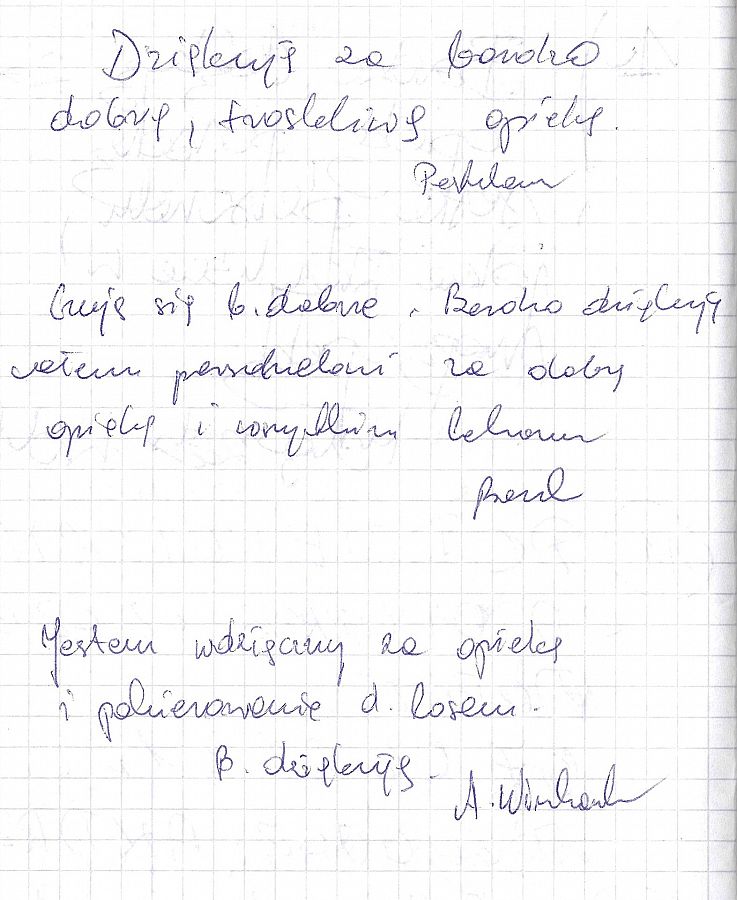 Dziękuję za bardzo
dobrą, troskliwą opiekę.
Czuję się b. dobrze. Bardzo dziękuję
całem personelowi za dobą
opiekę i wszystkim lekarzom
Jestem wdzięczny za opiekę
i pokierowanie d. losem.
B. dziękuję.
A.